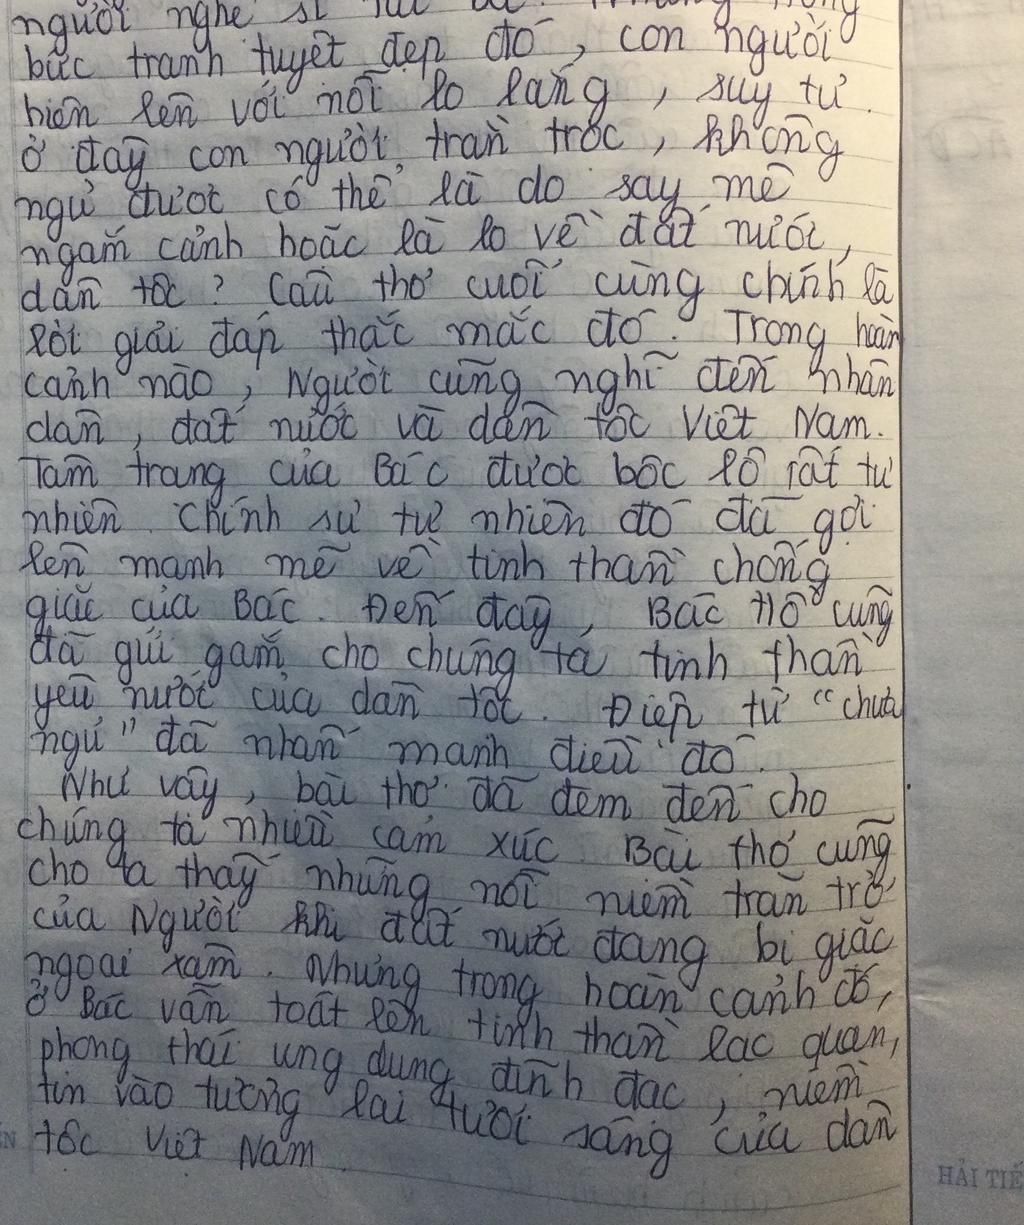 người nghệ sĩ tài ba. Nhưng trong
bức tranh tuyệt đẹp đó, con người
hiện lên với nỗi lo lắng, suy tư.
ở đây con người trằn trọc, không
ngủ được có thể là do say mê
ngắm cảnh hoặc là lo về đất nước,
dân tộc? Câu thơ cuối cùng chính là
lời giải đáp thắc mắc đó. Trong hoàn
cảnh nào, Người cũng nghĩ đến nhân
dân, đất nước và dân tộc Việt Nam.
Tâm trạng của Bác được bộc lộ rất tự
nhiên. Chính sự tự nhiên đó đã gợi
lên mạnh mẽ về tinh thần chống
giặc của Bác. Đến đây, Bác Hồ cũng
đã gửi gắm cho chúng ta tinh thần
yêu nước của dân tộc. Điệp từ "chưa
ngủ" đã nhấn mạnh điều đó.
Như vậy, bài thơ đã đem đến cho
chúng ta nhiều cảm xúc. Bài thơ cũng
cho ta thấy những nỗi niềm trăn trở
của Người khi đất nước đang bị giặc
ngoại xâm. Nhưng trong hoàn cảnh đó,
ở Bác vẫn toát lên tinh thần lạc quan,
phong thái ung dung, đĩnh đạc, niềm
tin vào tương lai tươi sáng của dân
tộc Việt Nam.
HẢI TIẾ